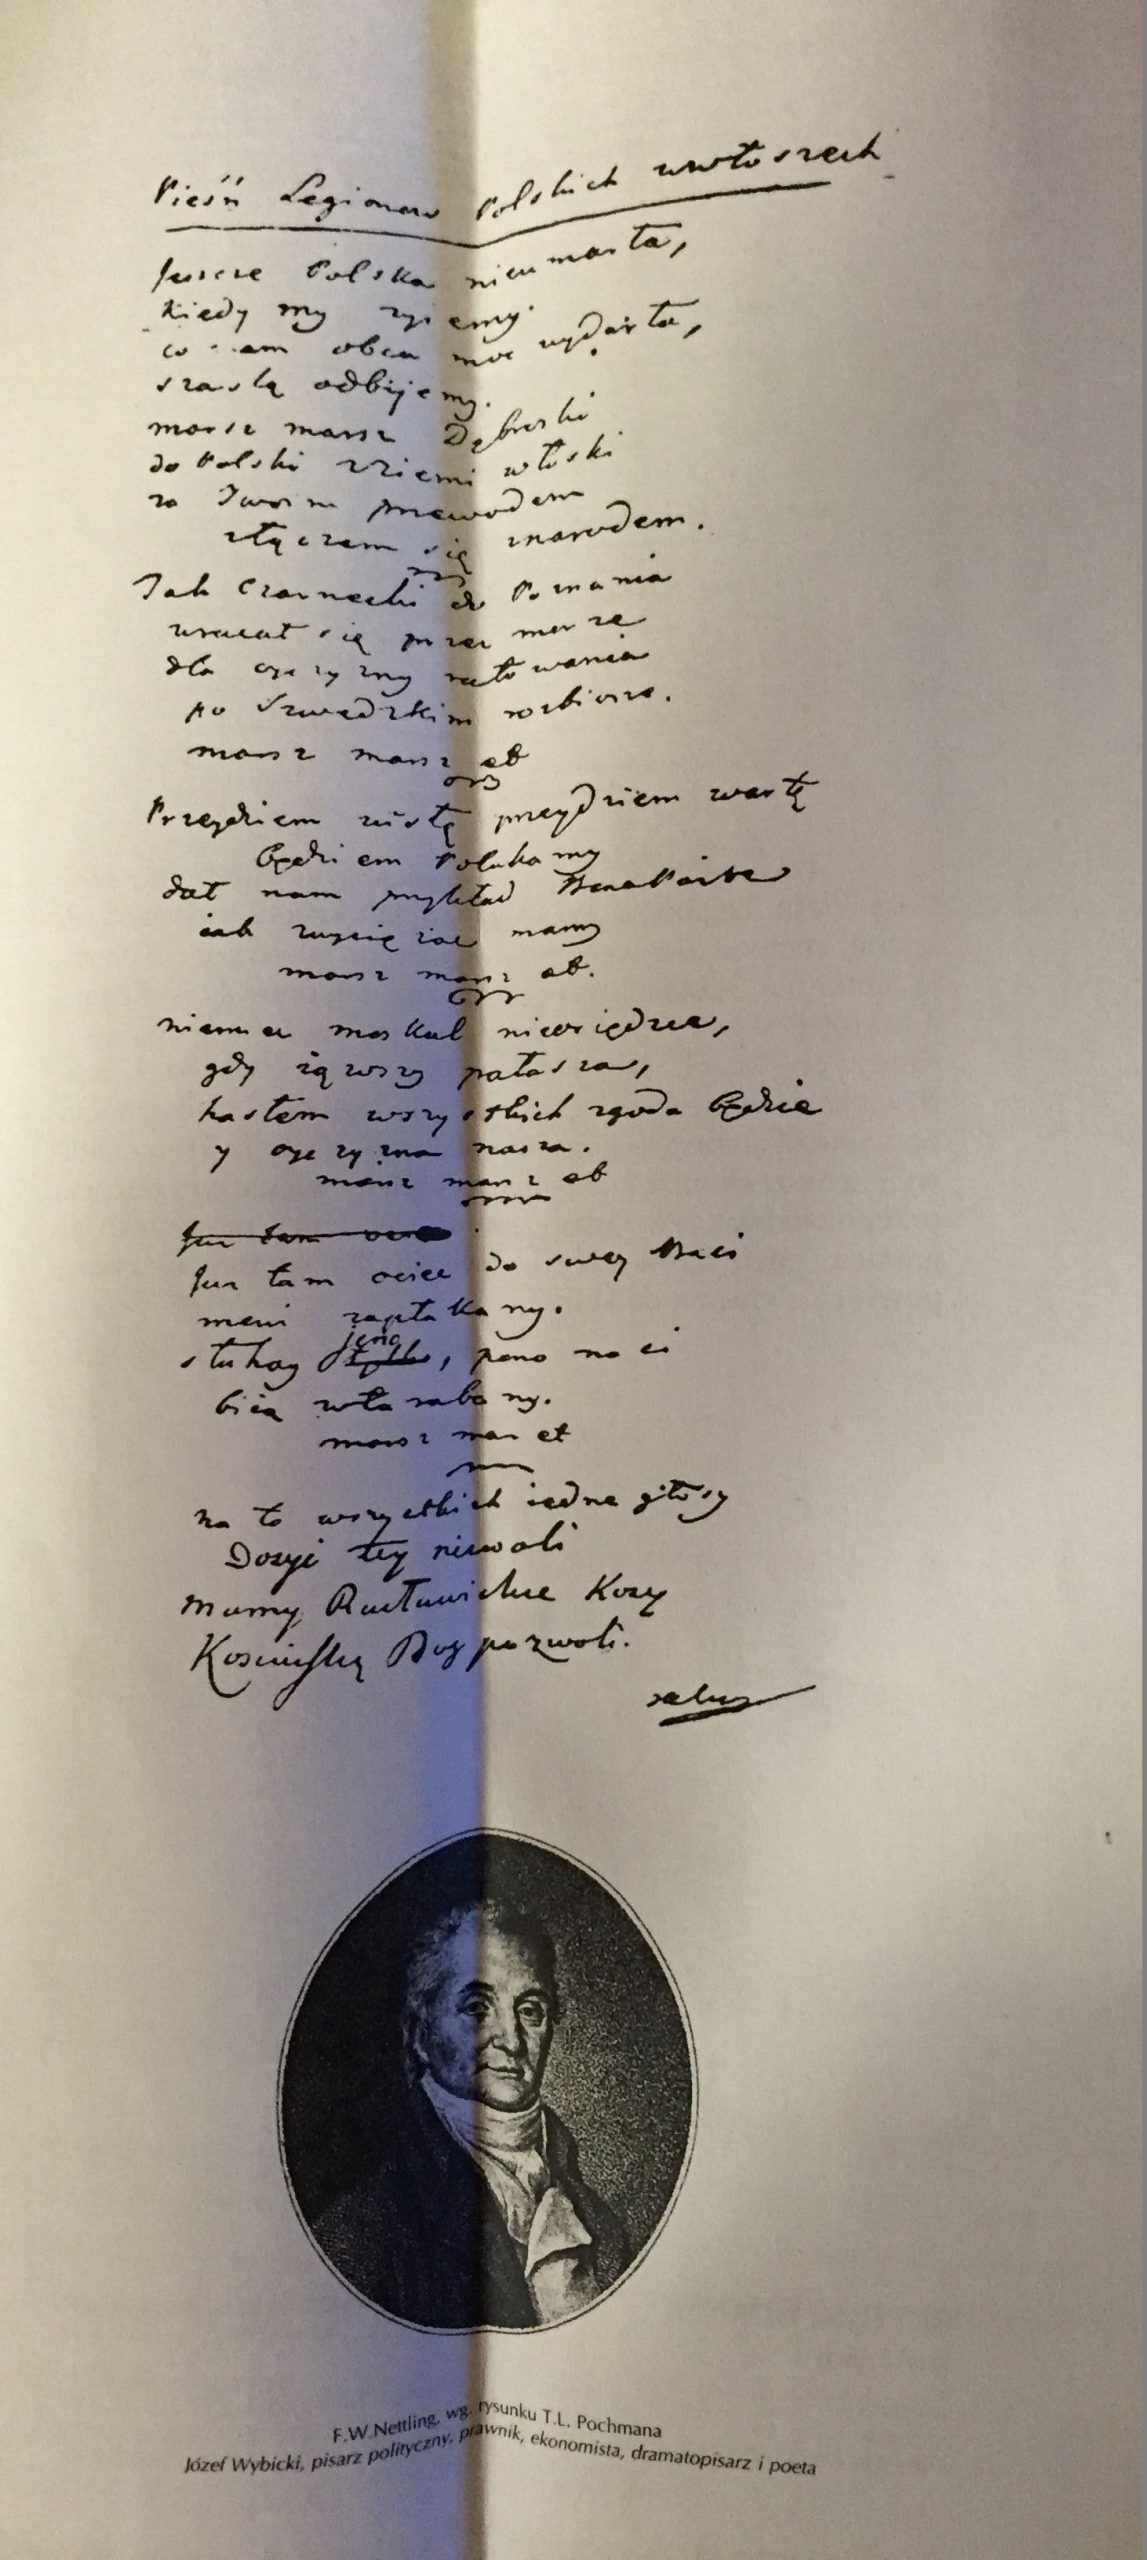 Pieśń Legionow Polskich wewłoszech
Jeszcze Polska nieumarła,
kiedy my zyiemy
co nam obca moc wydarła,
szablą odbijemy.
marsz marsz Dąbroski
do Polski zZiemi włoski
za Twoim przewodem
złączem się znarodem.
Jak Czarnecki do Poznania
wracał się przez morze
dla oyczyzny ratowania
po Szwedzkim rozbiorze.
marsz marsz et
Przejdziem wisłę przeydziem wartę
będziem Polakamy
dał nam przykład Bonaparte
iak zwyciężac mamy
marsz marsz et.
niemiec moskal nieosiędzie,
gdy iąwszy pałasza,
hasłem wszystkich zgoda będzie
y oyczyzna nasza.
marsz marsz et
Juz tam
Juz tam ociec do swey Basi
mowi zapłakany.
słuhay jeno, pono nasi
biią wtarabany.
marsz mar et
na to wszystkich iedne głosy
Dosyć tey niewoli
mamy Racławickie Kosy
Kosciuszkę Bog pozwoli.
F.W.Nettling, wg. rysunku T.L. Pochmana
Józef Wybicki, pisarz polityczny, prawnik, ekonomista, dramatopisarz i poeta